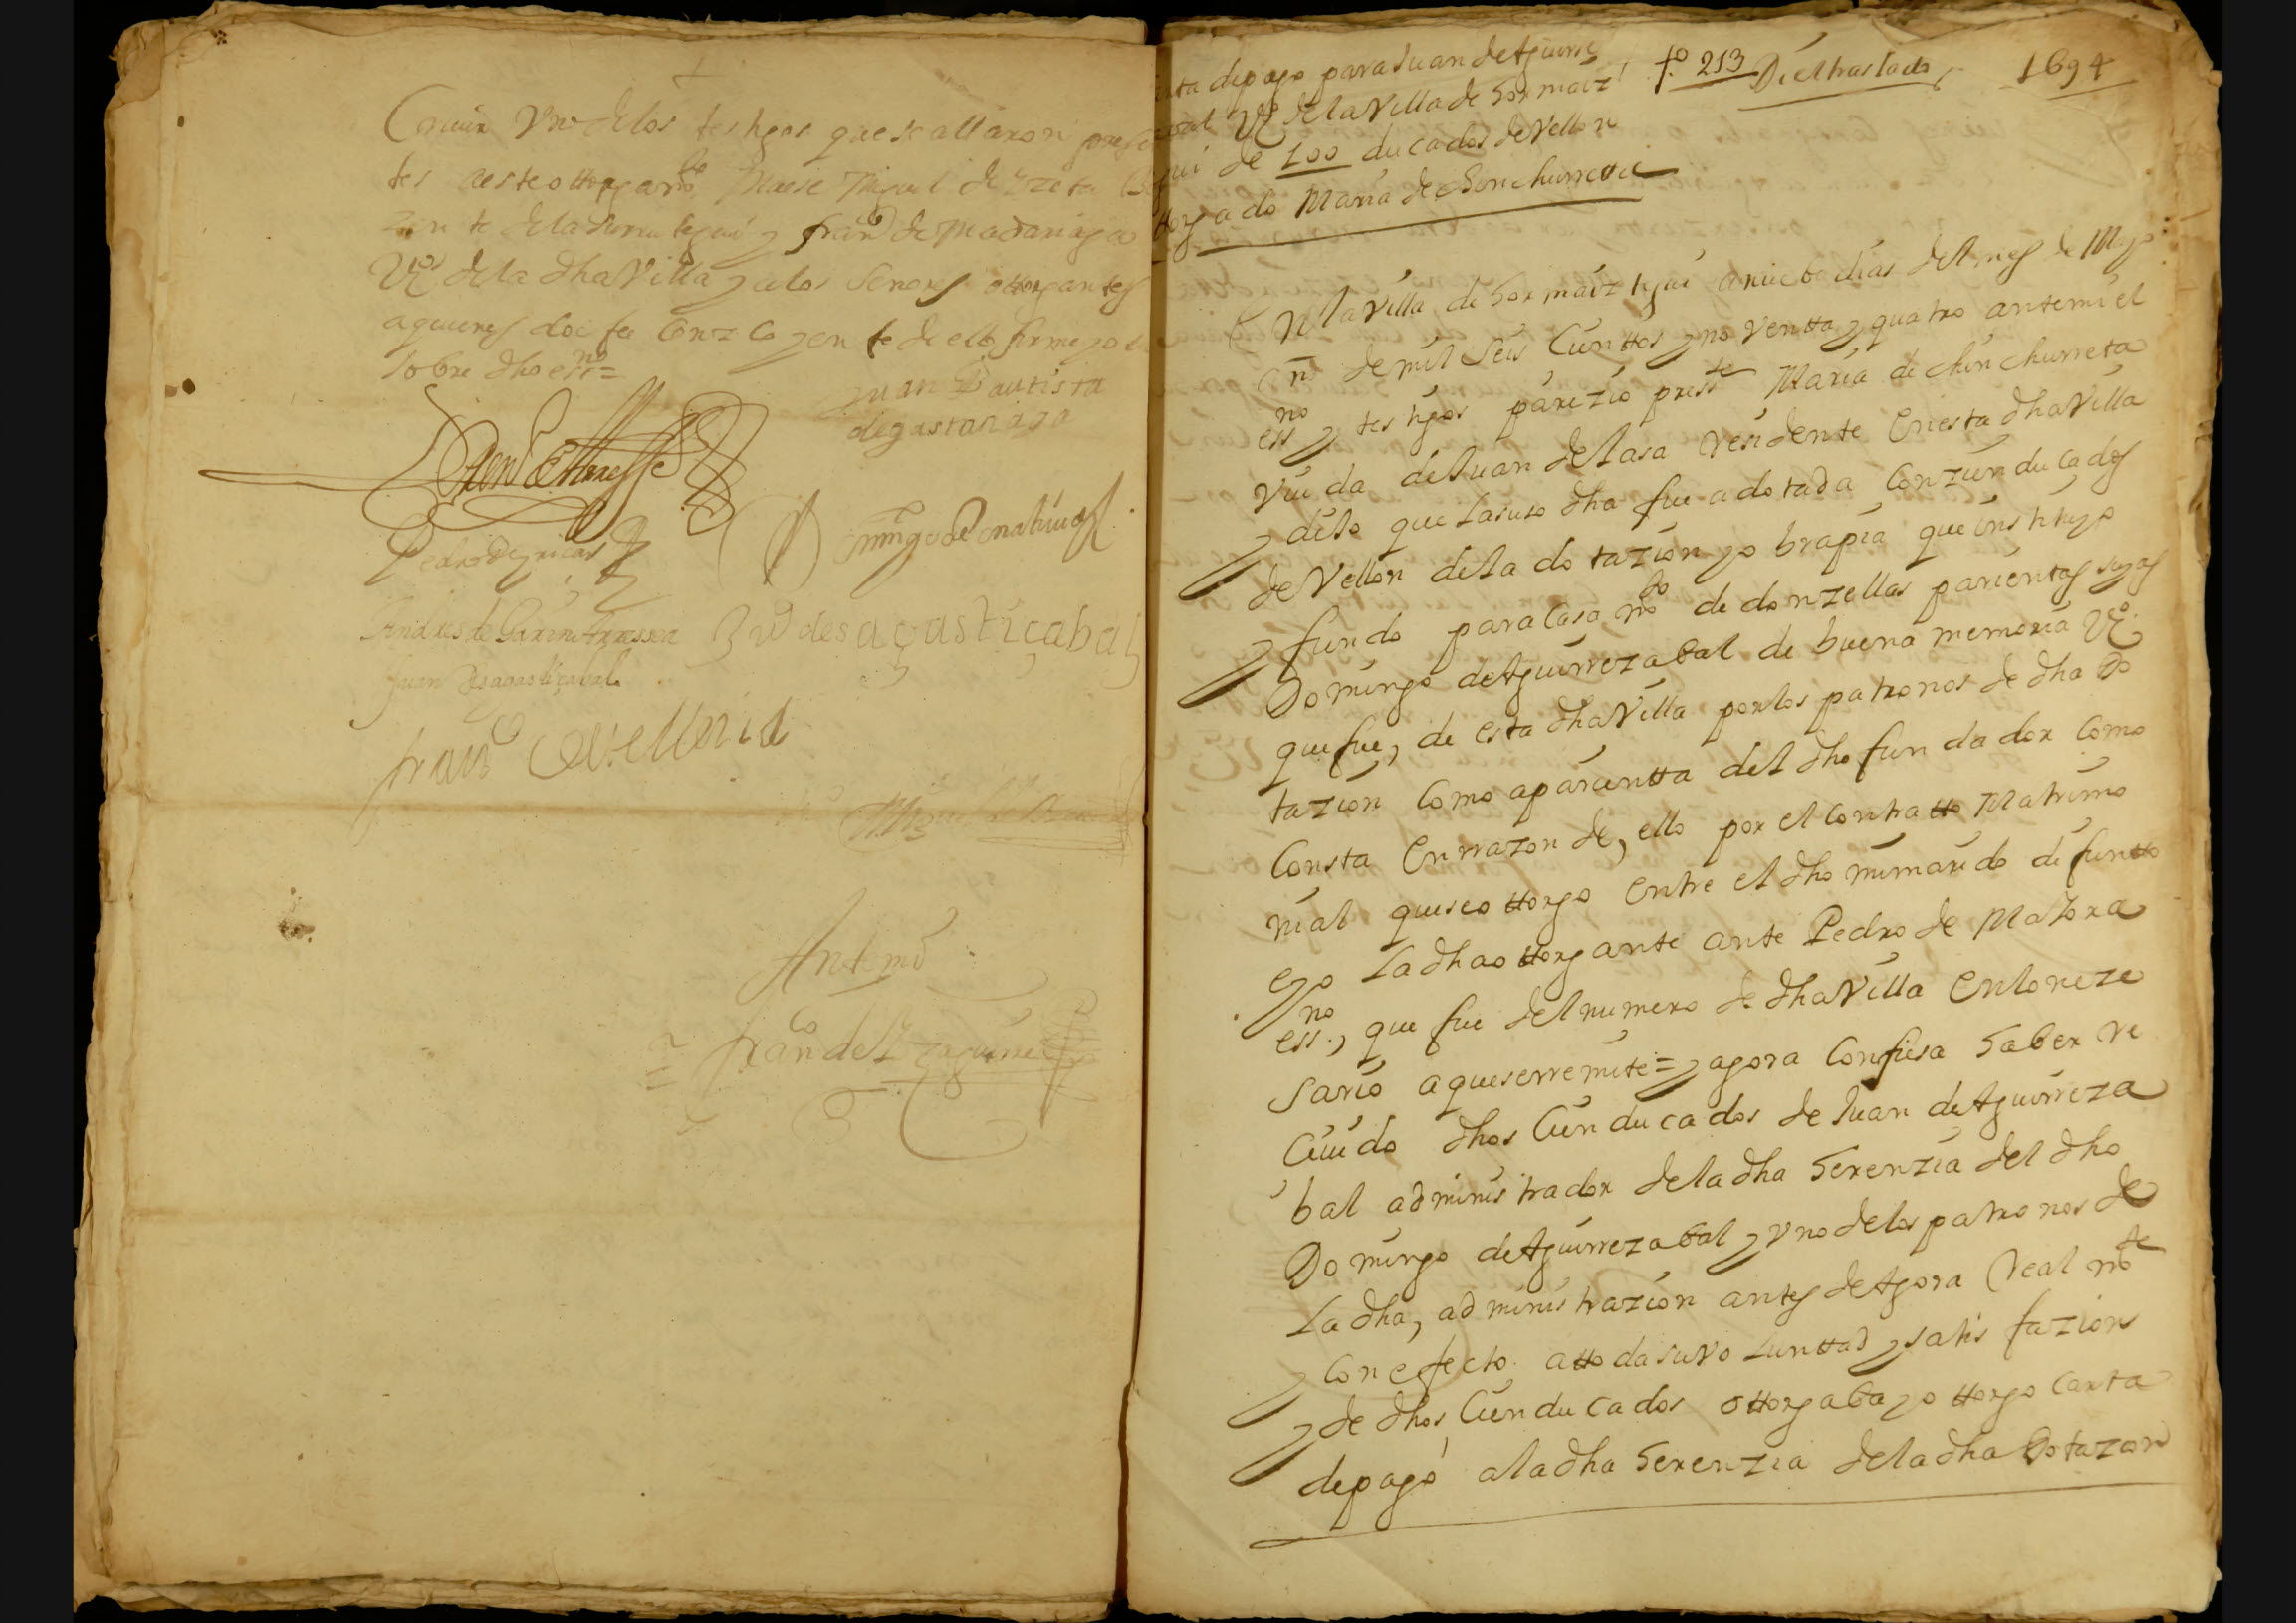 uno de los testigos que se allaron
tes aeste ottorgam.to Maese Miguel de
te de la y fran.co de Madariaga
V.os dela dha Villa y alos senores ottorgantes
aquienes doi fee Conozco y en fe de ello firme yo el
sobre dho ess.no =
Juan Bautista
degastanaga
Pedro de
Domingo de
Andres de
Ju.o desagastiçabal
Juan de sagastiçabal
fran.co
Miguel de
Antemi
fran.co de
depago para Juan de Aguirre
V.o de la Villa de Hormaiz
gui de 100 ducados de Vellon
ttorgado Maria de Chinchurreta
f.o 213 Di el traslado 1694
En la Villa de Hormaiztigui a nuebe dias del mes de Mayo
año de mil seis Cienttos y noventta y quatro antemi el
ess.no y testigos parezio press.te Maria de chinchurreta
viuda de Juan de lasa residente en esta dha Villa
y dixo que la suso dha fue adotada Con zien ducados
de Vellon de la dotazion y obrapia que instituyo
y fundo para casam.to de donzellas parientas suyas
Domingo de Aguirrezabal de buena memoria V.o
que fue, de esta dha Villa por los patronos de dha do
tazion Como aparientta del dho fundador Como
Consta En rrazon de, ello por el Contratto Matrimo
nial que se ottorgo Entre el dho mi marido difuntto
e yo la dha ottorgante ante Pedro de Mallora
ess.no, que fue del numero de dha Villa En lo neze
sario a que se rremite = y agora Confiesa haber re
Ciuido dhos Cien ducados de Juan de Aguirreza
bal administrador de la dha herenzia del dho
Domingo de Aguirrezabal y vno de los patronos de
la dha, administrazion antes de Agora Real m.te
y Con efecto a ttoda su voluntad y satisfazion
y de dhos Cien ducados ottorgaba y ottorgo carta
de pago a la dha herenzia de la dha Dotazion